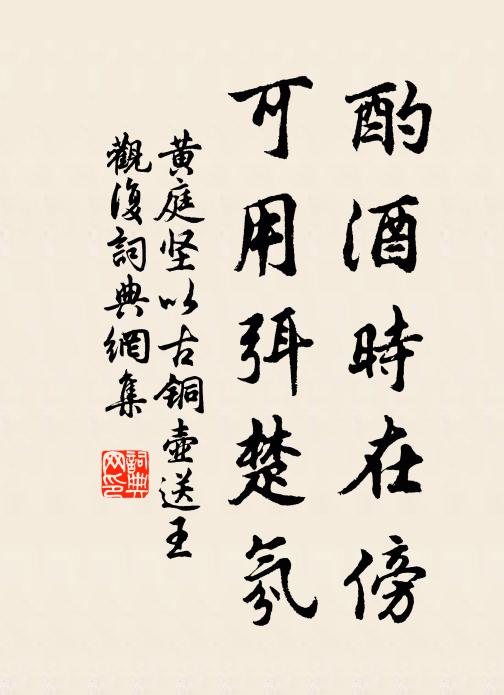 酌酒時在傍
可用弭楚氛
黄庭坚以古銅壺送王
觀復詞典網集
詞典
网印